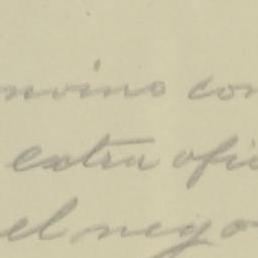 nvino con
extra ofi
el nego